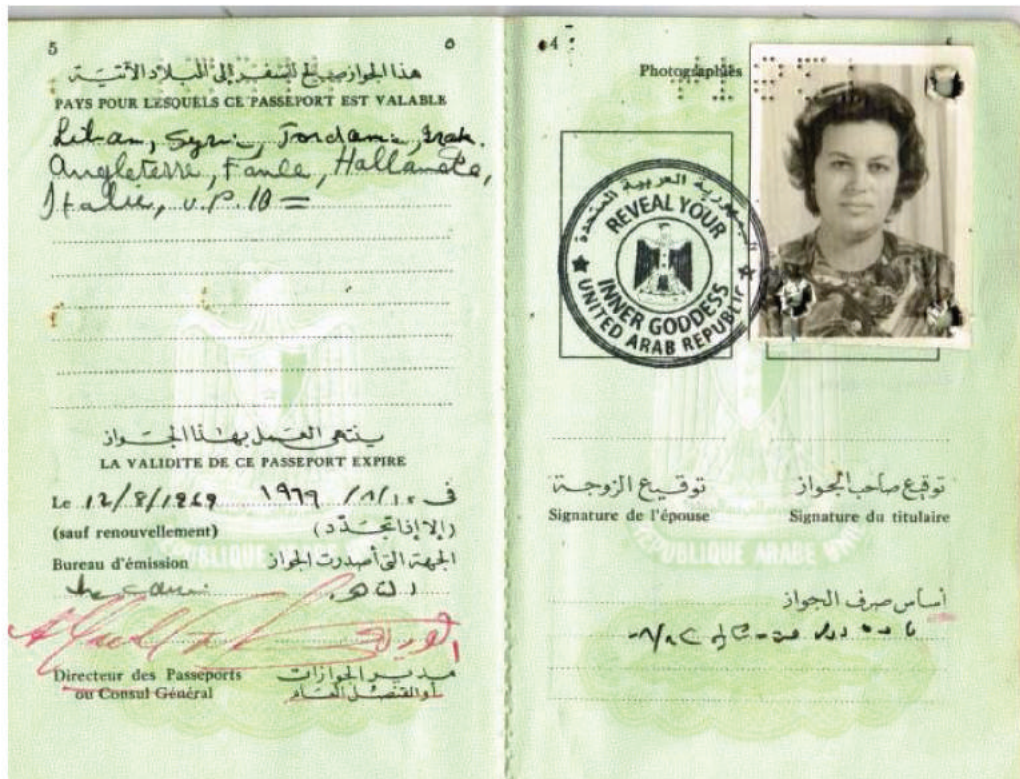 5 ٥
هذا الجواز صالح للسفر إلى البلاد الآتية
PAYS POUR LESQUELS CE PASSEPORT EST VALABLE
Liban, Syrie, Jordanie, Irak.
Angleterre, Hallande,
Italie,
ينتهى العمل بهذا الجواز
LA VALIDITE DE CE PASSEPORT EXPIRE
Le 12/8/1969 ١٩٦٩ /٨/١٢ فى
(sauf renouvellement) (إلا إذا تجدد)
Bureau d'émission الجهة التى أصدرت الجواز
القاهرة
Directeur des Passeports مدير الجوازات
ou Consul Général أو القنصل العام
4
Photographies
الجمهورية العربية المتحدة
REVEAL YOUR
INNER GODDESS
UNITED ARAB REPUBLIC
توقيع الزوجة توقيع صاحب الجواز
Signature de l'épouse Signature du titulaire
REPUBLIQUE ARABE UNIE
أساس صرف الجواز